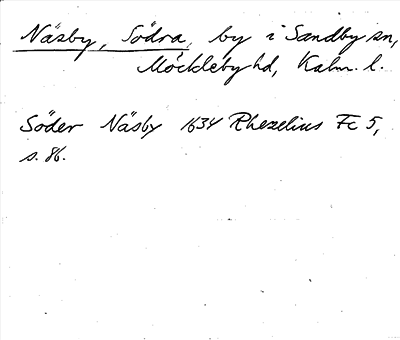 Näsby, Södra, by i Sandby sn,
Möckleby hd, Kalm. l.
Söder Näsby 1634 Rhezelius Fc 5,
s. 86.